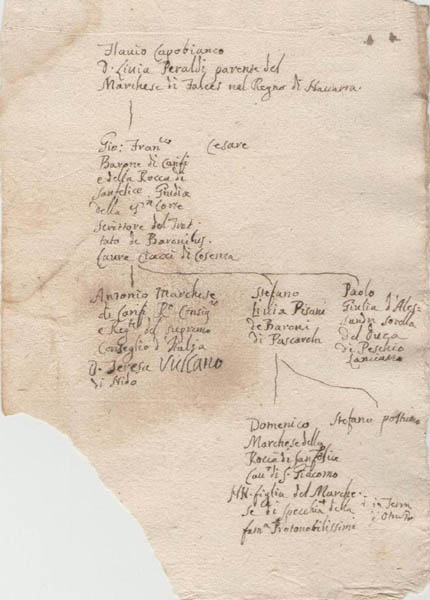 Flavio Capobianco
D. Livia Peraldi parense del
Marchese di Falces nel Regno di Navarra.
Gio: Fran.co Cesare
Barone di Carifi
e della Rocca di
Sanfelice Giudice
della Corte
Scrittore del Trat
tato de Baronibus.
Laura Ciacci di Cosenza
Antonio Marchese
di Carifi Consig.
e Regte del supremo
Conseglio d'Italia
D. Teresa Vulcano
di Nido
Stefano
Livia Pisani
de Baroni
di Pascarola
Paolo
Giulia d'Ales-
sandro Sorella
del Duca
di Peschio
Lanciano
Domenico
Marchese della
Rocca di Sanfelice
Cav.r di S. Giacomo
NN. figlia del Marche-
se di Specchia della
fam.a Protonobilissimi
in Terra
d'Otranto
Stefano postumo